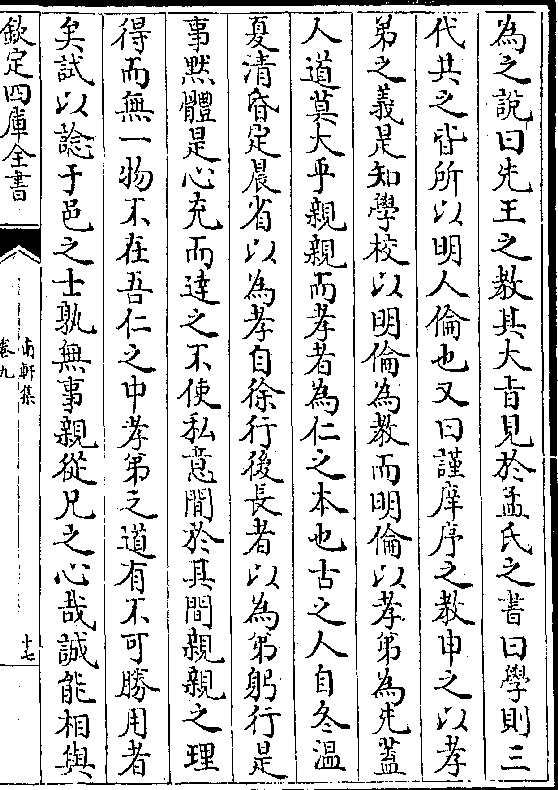 為之說曰先王之教其大旨見於孟氏之書曰學則三
代共之皆所以明人倫也又曰謹庠序之教申之以孝
弟之義是知學校以明倫為教而明倫以孝弟為先蓋
人道莫大乎親親而孝者為仁之本也古之人自冬溫
夏凊昏定晨省以為孝自徐行後長者以為弟躬行是
事黙體是心充而達之不使私意間於其間親親之理
得而無一物不在吾仁之中孝弟之道有不可勝用者
矣試以諗于邑之士孰無事親從兄之心哉誠能相與
欽定四庫全書
南軒集
卷九
十七